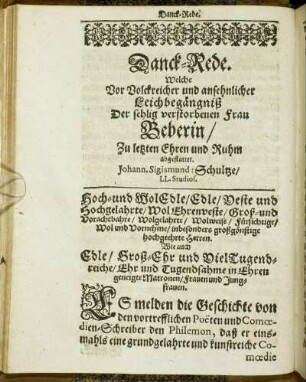 Danck-Rede.
Danck-Rede.
Welche
Vor Volckreicher und ansehnlicher
Leichbegängniß
Der sehlig verstorbenen Frau
Beberin/
Zu letzten Ehren und Ruhm
abgestattet.
Johann. Sigismund: Schultze/
LL. Studios.
Hoch- und WolEdle/ Edle/ Veste und
Hochgelahrte/ WolEhrenveste/ Groß- und
Vorachtbahre/ Wolgelahrte/ Wolweise/ Fürsichtige/
Wol und Vornehme/ insbesonders großgünstige
hochgeehrte Herren.
Wie auch
Edle/ Groß-Ehr und VielTugend-
reiche/ Ehr und Tugendsahme in Ehren
geneigte Matronen/ Frauen und Jung-
frauen.
ES melden die Geschichte von
den vortrefflichen Poëten und Comœ-
dien-Schreiber den Philemon, daß er eins-
mahls eine grundgelahrte und kunstreiche Co-
mœdie